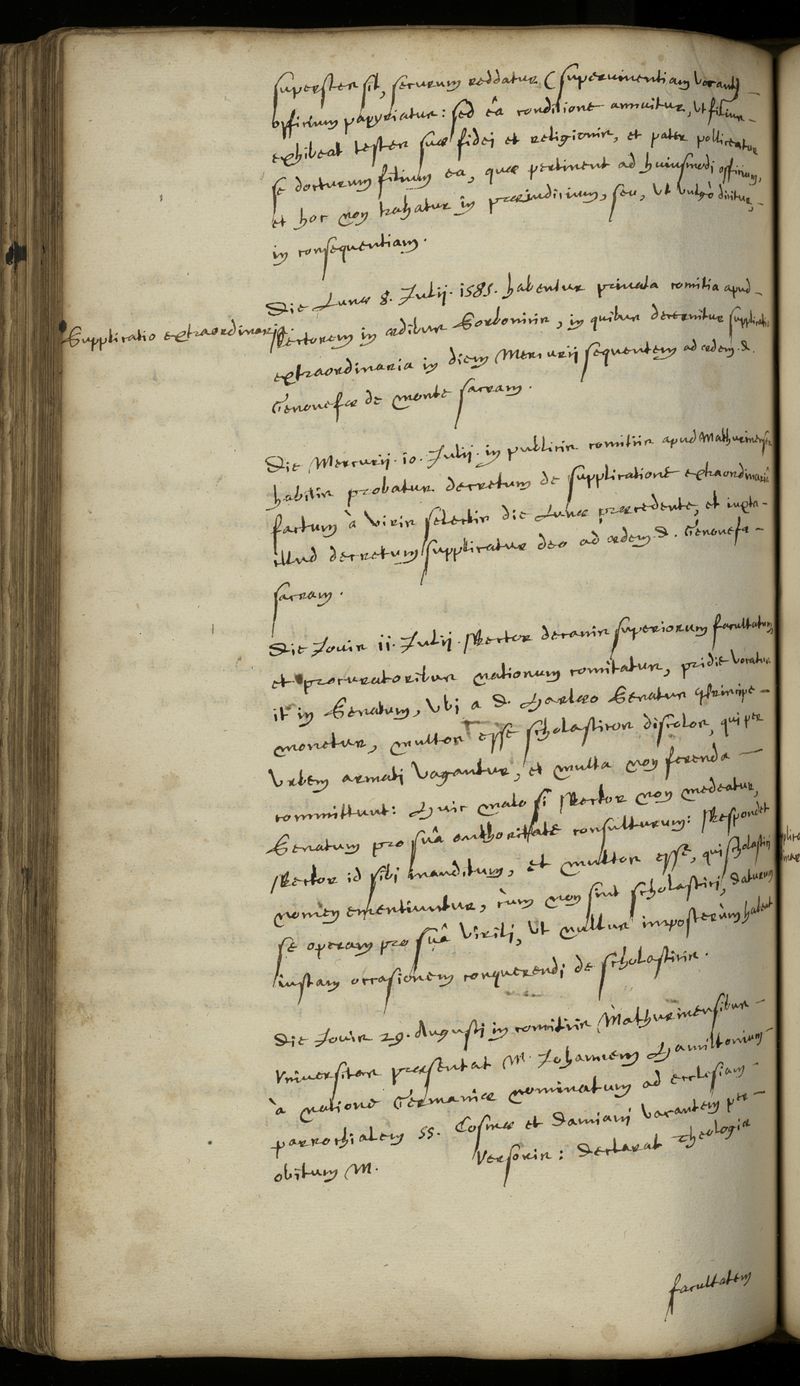 superstes sit, securum reddatur (superuiuentiam vocant)
officium papyriatus: sed eâ conditione annuitur, vt filius
exhibeat testes suæ fidei et religionis, et pater polliceatur
se docturum filium ea, quæ pertinent ad huiusmodi officium,
et hoc non trahatur in præiudicium, seu, vt vulgò dicitur,
in consequentiam.
Die Lunæ 8. Julij. 1585. habentur priuata comitia apud
Supplicatio extraordinaria.
Rectorem in ædibus Sorbonicis, in quibus decernitur supplicatio
extraordinaria in diem Mercurij sequentem ad ædem D.
Genouefæ de monte sacram.
Die Mercurij. 10. Julij. in publicis comitijs apud Mathurinenses
habitis probatur decretum de supplicatione extraordinaria
factum à viris selectis die Lunæ præcedente, et iuxta
illud decretum supplicatur deo ad ædem D. Genouefæ
sacram.
Die Jouis 11. Julij. Rector decanis superiorum facultatum
et procuratoribus nationum comitatus, pridie vocatus
it in Senatum, vbi a D. Harlæo Senatus principe
monetur, multos esse scholasticos discolos, qui per
vrbem armati vagantur, et multa non ferenda
committunt: Huic malo si Rector non medeatur,
Senatum pro suâ authoritate consulturum: Respondet
Rector id sibi inauditum, et multos esse, qui scholastici
nomen ementiuntur, cùm non sint scholastici, daturum
se operam pro suâ virili, vt nullus imposterùm habeat
iustam occasionem conquerendi de scholasticis.
Die Jouis 29. Augusti in comitijs Mathurinensibus
Vniuersitas præsentat M. Johannem Hamiltonium
à natione Germaniæ nominatum ad ecclesiam
parrochialem SS. Cosmæ et Damiani vacantem per
obitum M. Versoris: declarat Theologiæ
facultatem